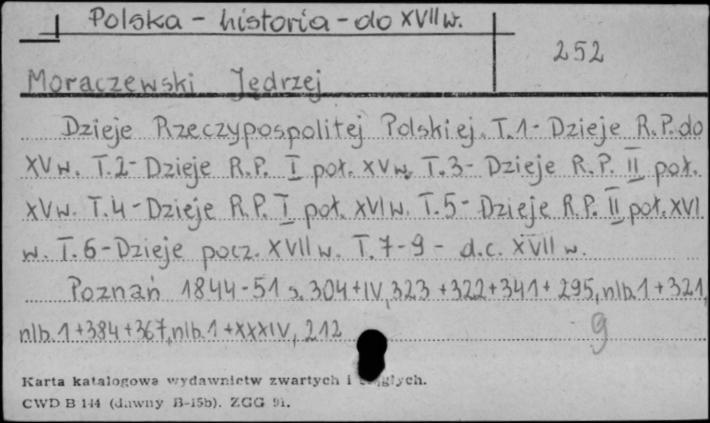 Polska - historia - do XVII w.
252
Moraczewski Jędrzej
Dzieje Rzeczypospolitej Polskiej. T.1- Dzieje R.P. do
XV w. T.2- Dzieje R.P. I poł. XV w. T.3- Dzieje R.P. II poł.
XV w. T.4- Dzieje R.P. I poł. XVI w. T.5- Dzieje R.P. II poł. XVI
w. T.6- Dzieje pocz. XVII w. T.7-9 - d.c. XVII w.
Poznań 1844-51 s. 304+IV, 323 +322+341+ 295, nlb.1 +321,
nlb.1 +384+367, nlb.1 +XXXIV, 212
9
Karta katalogowa wydawnictw zwartych i ciągłych.
CWD B 144 (dawny B-15b). ZGG 91.